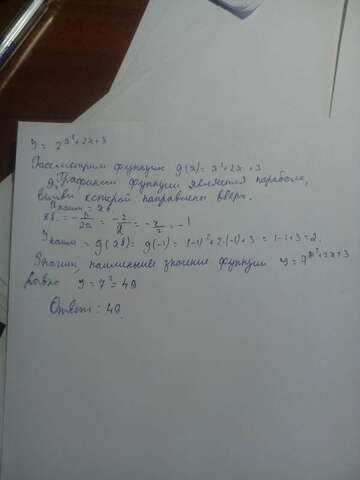 y = 7^{x²+2x+3}
Рассмотрим функцию g(x) = x²+2x+3
Графиком функции является парабола,
ветви которой направлены вверх.
y наим = xв.
xв. = -b/2a = -2/2 = -1
y наим = g(xв) = g(-1) = (-1)²+2·(-1)+3 = 1-2+3 = 2.
Значит, наименьшее значение функции y = 7^{x²+2x+3}
равно y = 7² = 49
Ответ: 49.